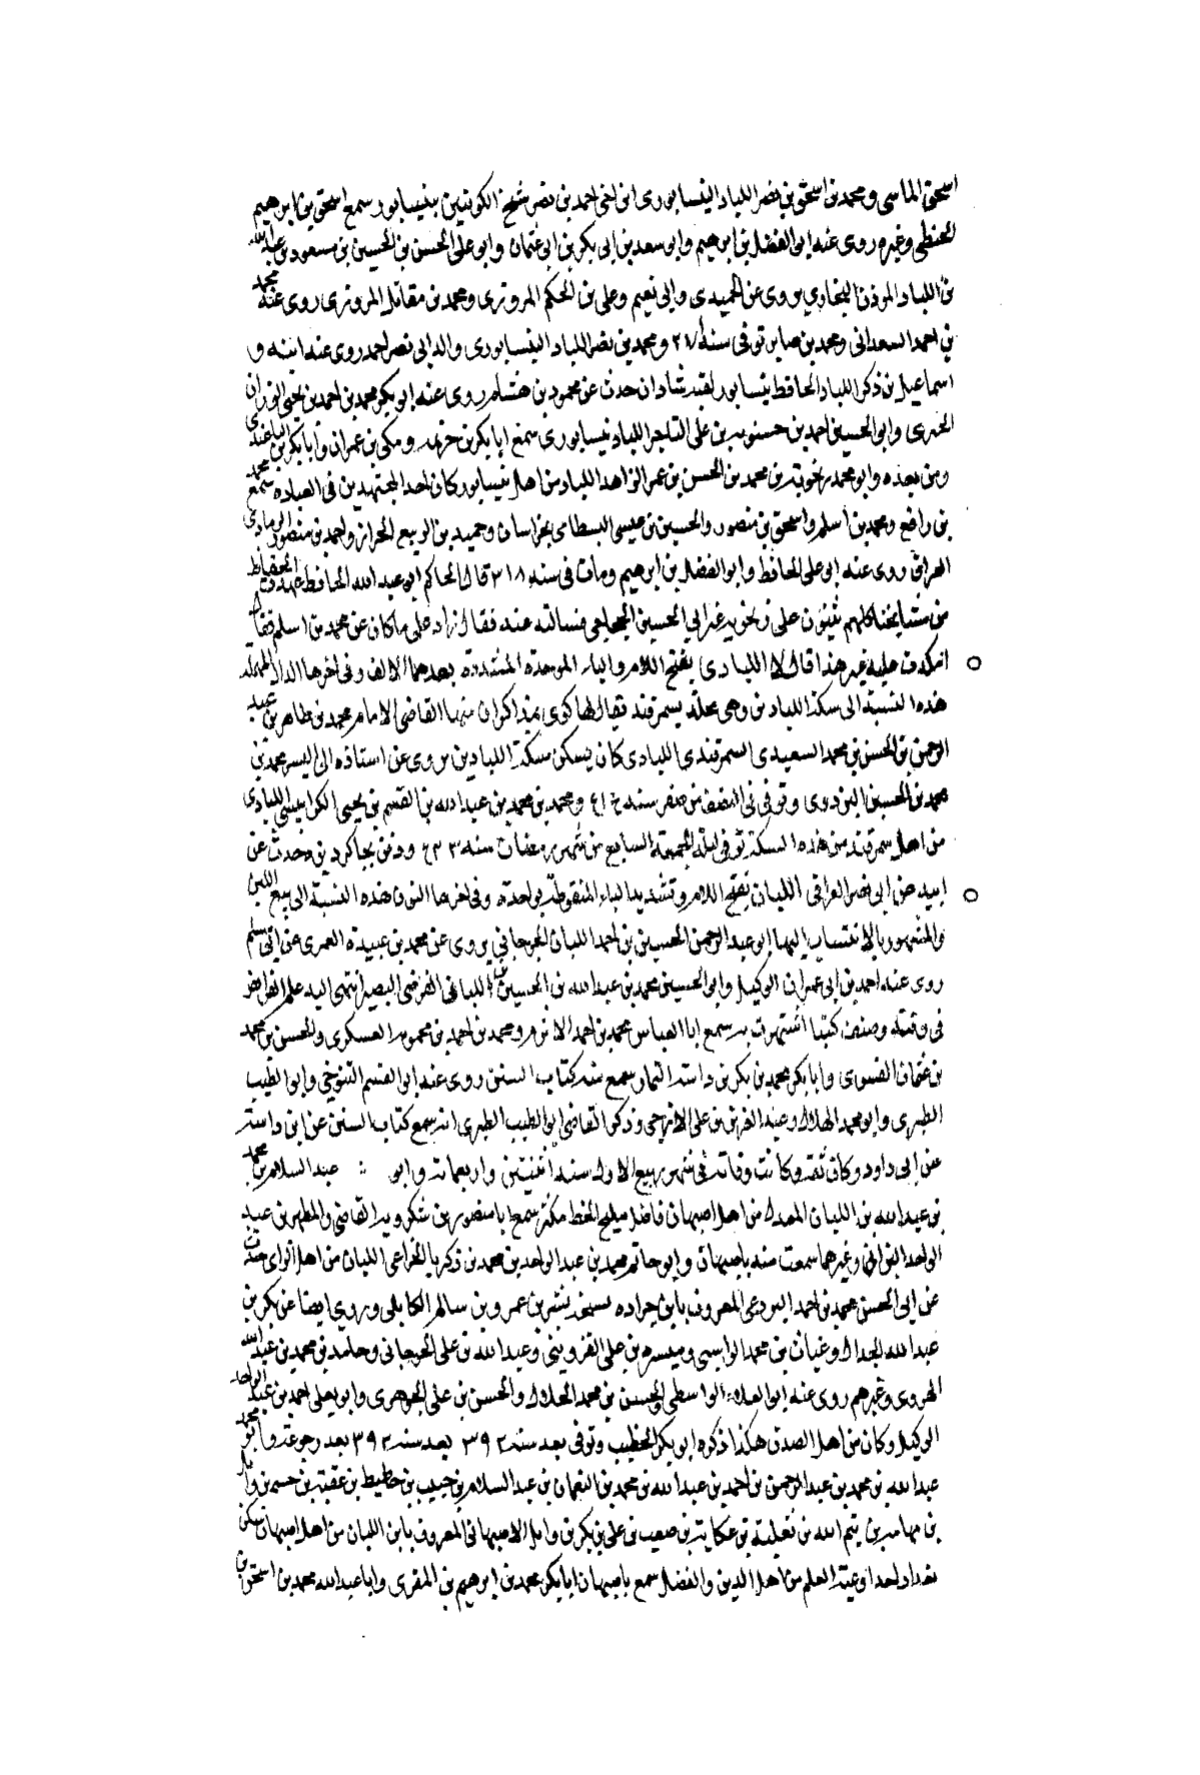 اسحق الماسى ومحمد بن اسحق بن نصر اللباد النيسابورى ابن اخى احمد بن نصر شيخ الكوفيين بنيسابور سمع اسحق بن ابرهيم
الحنظلى وغيره روى عنه ابو الفضل بن ابرهيم وابو سعد بن ابى بكر بن ابى عثمان وابو على الحسن بن الحسين بن مسعود بن عبد الله
بن اللباد المؤذن البخارى يروى عن الحميدى وابى نعيم وعلى بن الحكم المروزى ومحمد بن مقاتل المروزى روى عنه محمد
بن احمد السعدانى ومحمد بن صابر توفى سنة ومحمد بن نصر اللباد النيسابورى والد ابى نصر احمد روى عنه ابنه و
اسماعيل بن ذكر اللباد الحافظ بنيسابور لقبه شاذان حدث عن محمود بن هشام روى عنه ابو بكر محمد بن احمد بن يحيى الوزان
وابو الحسين احمد بن حسنويه بن على التاجر اللباد نيسابورى سمع ابا بكر بن خزيمه ومكى بن عمران وابا بكر بن الباغندى
ومن بعده وابو محمد زنجويه بن محمد بن الحسن بن عمر الزاهد اللباد من اهل نيسابور كان احد المجتهدين فى العباده سمع محمد
بن رافع ومحمد بن اسلم واسحق بن منصور والحسين بن عيسى البسطامى بخراسان وحميد بن الربيع الخزاز واحمد بن منصور الرمادى
العراق روى عنه ابو على الحافظ وابو الفضل بن ابرهيم ومات فى سنه ٣١٨ قال الحاكم ابو عبد الله الحافظ عهدت الحفاظ
من مشايخنا كلهم يثنون على زنجويه غير ابى الحسين الحجاجى فسالته عنه فقال زاد على ما كان عن محمد بن اسلم فقال
انكرت عليه غير هذا قال لا اللبادى بفتح اللام والباء الموحدة المشددة بعدهما الالف وفى اخرها الدال المهمله
هذه النسبة الى سكة اللبادين وهى محلة بسمرقند يقال لها كوى نمذ كران منها القاضى الامام محمد بن طاهر بن عبد
الرحمن بن الحسن بن محمد السعيدى السمرقندى اللبادى كان يسكن سكة اللبادين يروى عن استاذه ابى اليسر محمد بن
محمد بن الحسين البزدوى وتوفى فى النصف من صفر سنه ومحمد بن محمد بن عبد الله بن القسم بن يحيى الكرابيسى اللبادى
من اهل سمرقند من هذه السكة توفى ليلة الجمعة السابع من شهر رمضان سنه ودفن بجاكرديزه وحدث عن
ابيه عن ابى نصر العراقى اللبان بفتح اللام وتشديد الباء المنقوطة بواحدة وفى اخرها النون هذه النسبة الى بيع اللبن
والمشهور بالانتساب اليها ابو عبد الرحمن الحسين بن احمد اللبان الجرجانى يروى عن محمد بن عبيدة العمرى عن ابى سلم
روى عنه احمد بن ابى عمران الوكيل وابو الحسين محمد بن عبد الله بن الحسين اللبانى الفرضى البصرى انتهى اليه علم الفرايض
فى وقته وصنف كتبا اشتهرت به سمع ابا العباس محمد بن احمد الاثرم ومحمد بن احمد بن محمويه العسكرى والحسن بن محمد
بن عثمان الفسوى وابا بكر محمد بن بكر بن داسه التمار سمع منه كتاب السنن روى عنه ابو القسم التنوخى وابو الطيب
الطبرى وابو محمد الهلال وعبد العزيز بن على الازجى وذكر القاضى ابو الطيب الطبرى انه سمع كتاب السنن عن ابن داسه
عن ابى داود وكان ثقة وكانت وفاته فى شهر ربيع الاول سنة اثنتين واربعماية وابو : عبد السلام بن محمد
بن عبد الله بن اللبان المعدل من اهل اصبهان فاضل مليح الخط مكثر سمع ابا منصور بن شكرويه القاضى والمطهر بن عبد
الواحد البزانى وغيرهما سمعت منه باصبهان وابو حاتم محمد بن عبد الواحد بن محمد بن زكريا الخزاعى اللبان من اهل الراى حدث
عن ابى الحسن محمد بن احمد البردعى المعروف بابن حراره نسخة بشر بن عمرو بن سالم الكابلى وروى ايضا عن بكر بن
عبد الله الجدال وغيان بن محمد الوابسى وميسره بن على القزوينى وعبد الله بن على الجرجانى وحامد بن محمد بن عبد الله
الهروى وغيرهم روى عنه ابو العلاء الواسطى والحسن بن محمد الخلال والحسن بن على الجوهرى وابو يعلى احمد بن عبد الواحد
الوكيل وكان من اهل الصدق هكذا ذكره ابو بكر الخطيب وتوفى بعد سنه ٣٩٢ بعد سنه ٣٩٢ بعد رجوعه وابو محمد
عبد الله بن محمد بن عبد الرحمن بن احمد بن عبد الله بن محمد بن النعمان بن عبد السلام بن حبيب بن حطيط بن عقبة بن خيثم بن وايل
بن مهامه بن تيم الله بن ثعلبة بن عكابة بن صعب بن على بن بكر بن وايل الاصبهانى المعروف بابن اللبان من اهل اصبهان سكن
بغداد احد اوعية العلم من اهل الدين والفضل سمع باصبهان ابا بكر محمد بن ابرهيم بن المقرى وابا عبد الله محمد بن اسحق بن